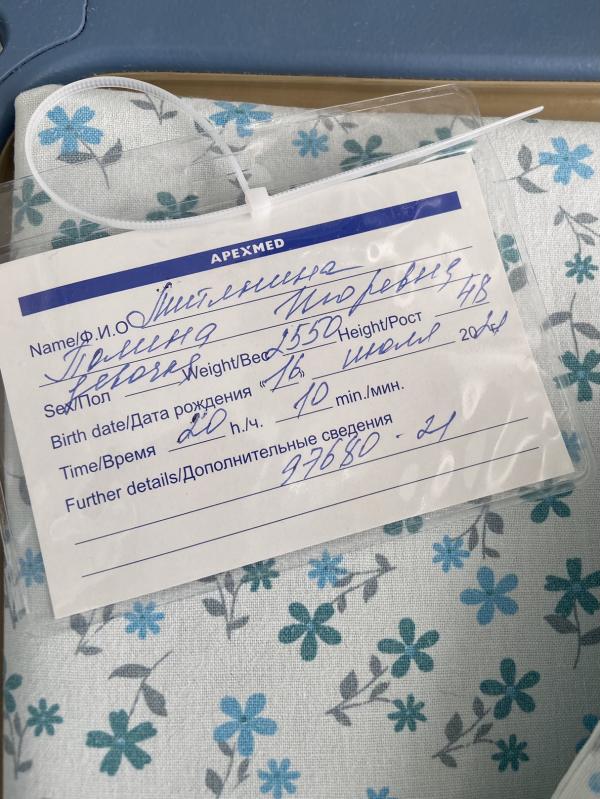 APEXMED
Name/Ф.И.О
Полина Игоревна
Sex/Пол девочка Weight/Вес 2550 Height/Рост 48
Birth date/Дата рождения "16" июля 2021
Time/Время 20 h./ч. 10 min./мин.
Further details/Дополнительные сведения
97680 - 21